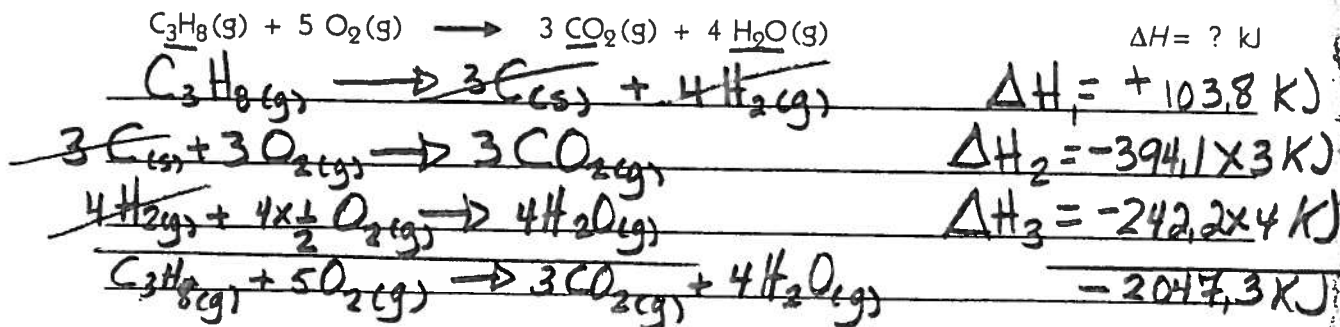 C₃H₈(g) + 5 O₂(g) ⟶ 3 CO₂(g) + 4 H₂O(g) ΔH = ? kJ
C₃H₈(g) → 3 C(s) + 4 H₂(g) ΔH₁ = +103,8 KJ
3 C(s) + 3 O₂(g) → 3 CO₂(g) ΔH₂ = -394,1 x 3 KJ
4 H₂(g) + 4x½ O₂(g) → 4H₂O(g) ΔH₃ = -242,2x4 KJ
C₃H₈(g) + 5O₂(g) → 3 CO₂(g) + 4H₂O(g) -2047,3 KJ